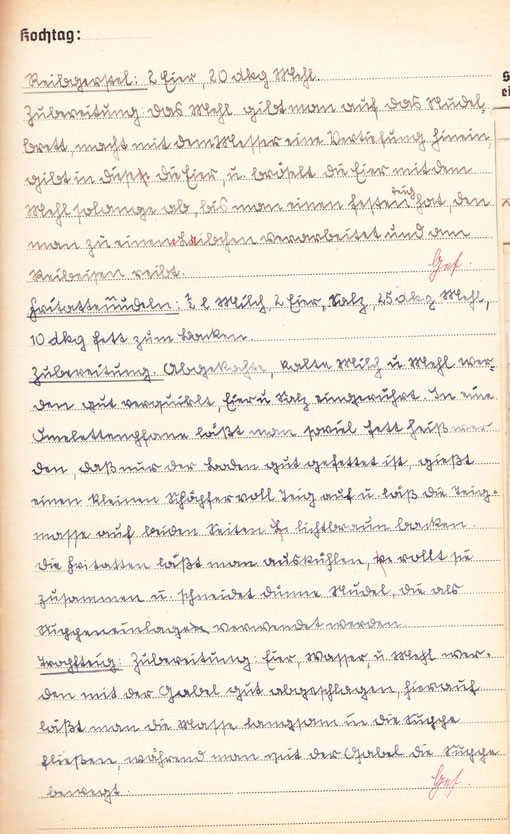 Kochtag:
Reibgerstel: 2 Eier, 20 dkg Mehl.
Zubereitung: Das Mehl gibt man auf das Nudel-
brett, macht mit dem Messer eine Vertiefung hinein,
gibt in diese die Eier, u. bröselt die Eier mit dem
Mehl solange ab, bis man einen festen Teig hat, den
man zu einem Laibchen verarbeitet und am
Reibeisen reibt.
Ges.
Frittattennudeln: ½ l Milch, 2 Eier, Salz, 25 dkg Mehl,
10 dkg Fett zum Backen.
Zubereitung. Abgekochte, kalte Milch u Mehl wer-
den gut verquirlt, Eier u Salz eingerührt. In eine
Omelettenpfanne läßt man soviel Fett heiß wer-
den, daß nur der Boden gut gefettet ist, gießt
einen kleinen Schöpfer voll Teig auf u. läß die Teig-
masse auf beiden Seiten lichtbraun backen.
Die Fritatten läßt man auskühlen, rollt sie
zusammen u. schneidet dünne Nudel, die als
Suppeneinlage verwendet werden.
Tropfteig: Zubereitung: Eier, Wasser, u. Mehl wer-
den mit der Gabel gut abgeschlagen, hierauf
läßt man die Masse langsam in die Suppe
fließen, während man mit der Gabel die Suppe
bewegt.
Ges.